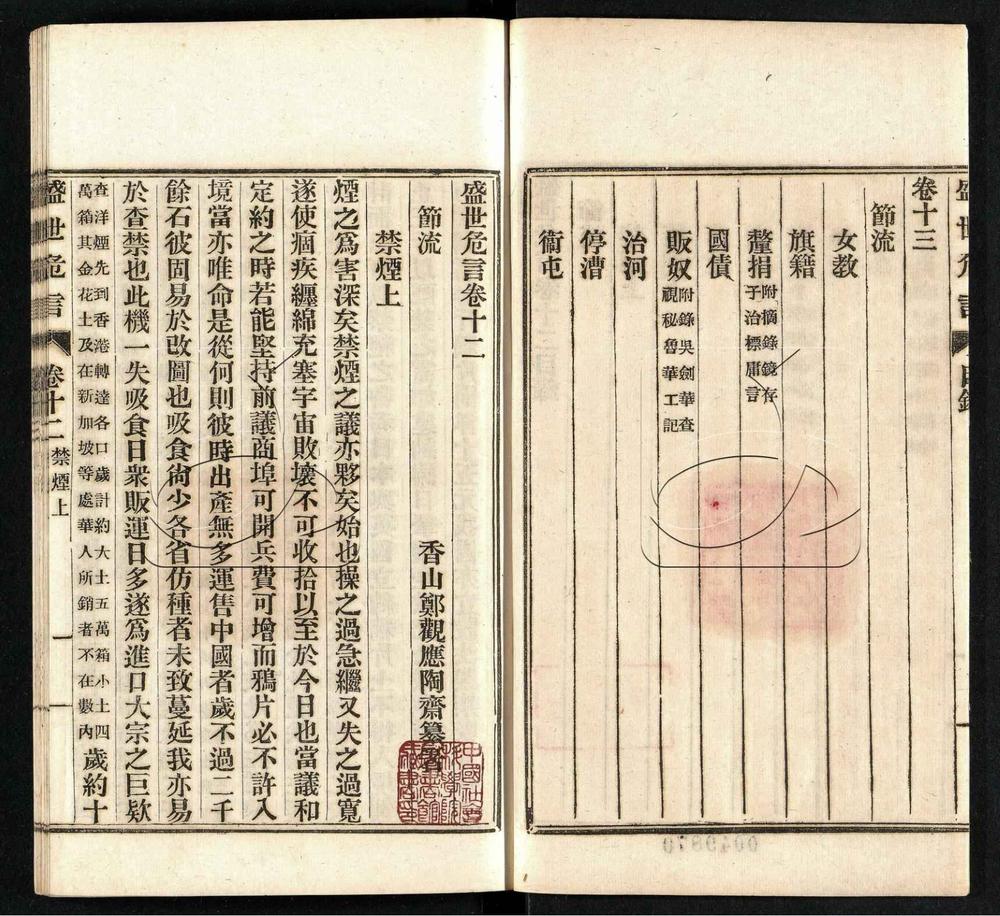 卷十三
節流
女教
旗籍
釐捐 附摘錄鏡存子治標庸言
國債
販奴 附錄吳劍華查視秘魯華工記
治河
停漕
衞屯
盛世危言卷十二
節流 香山鄭觀應陶齋纂著
禁煙上
煙之爲害深矣禁煙之議亦夥矣始也操之過急繼又失之過寬
遂使痼疾纏綿充塞宇宙敗壞不可收拾以至於今日也當議和
定約之時若能堅持前議商埠可開兵費可增而鴉片必不許入
境當亦唯命是從何則彼時出產無多運售中國者歲不過二千
餘石彼固易於改圖也吸食尙少各省仿種者未致蔓延我亦易
於查禁也此機一失吸食日衆販運日多遂爲進口大宗之巨欵
查洋煙先到香港轉達各口歲計約大土五萬箱小土四萬箱其金花土及在新加坡等處華人所銷者不在數內 歲約十
盛世危言 卷十二 禁煙上 一
0049870